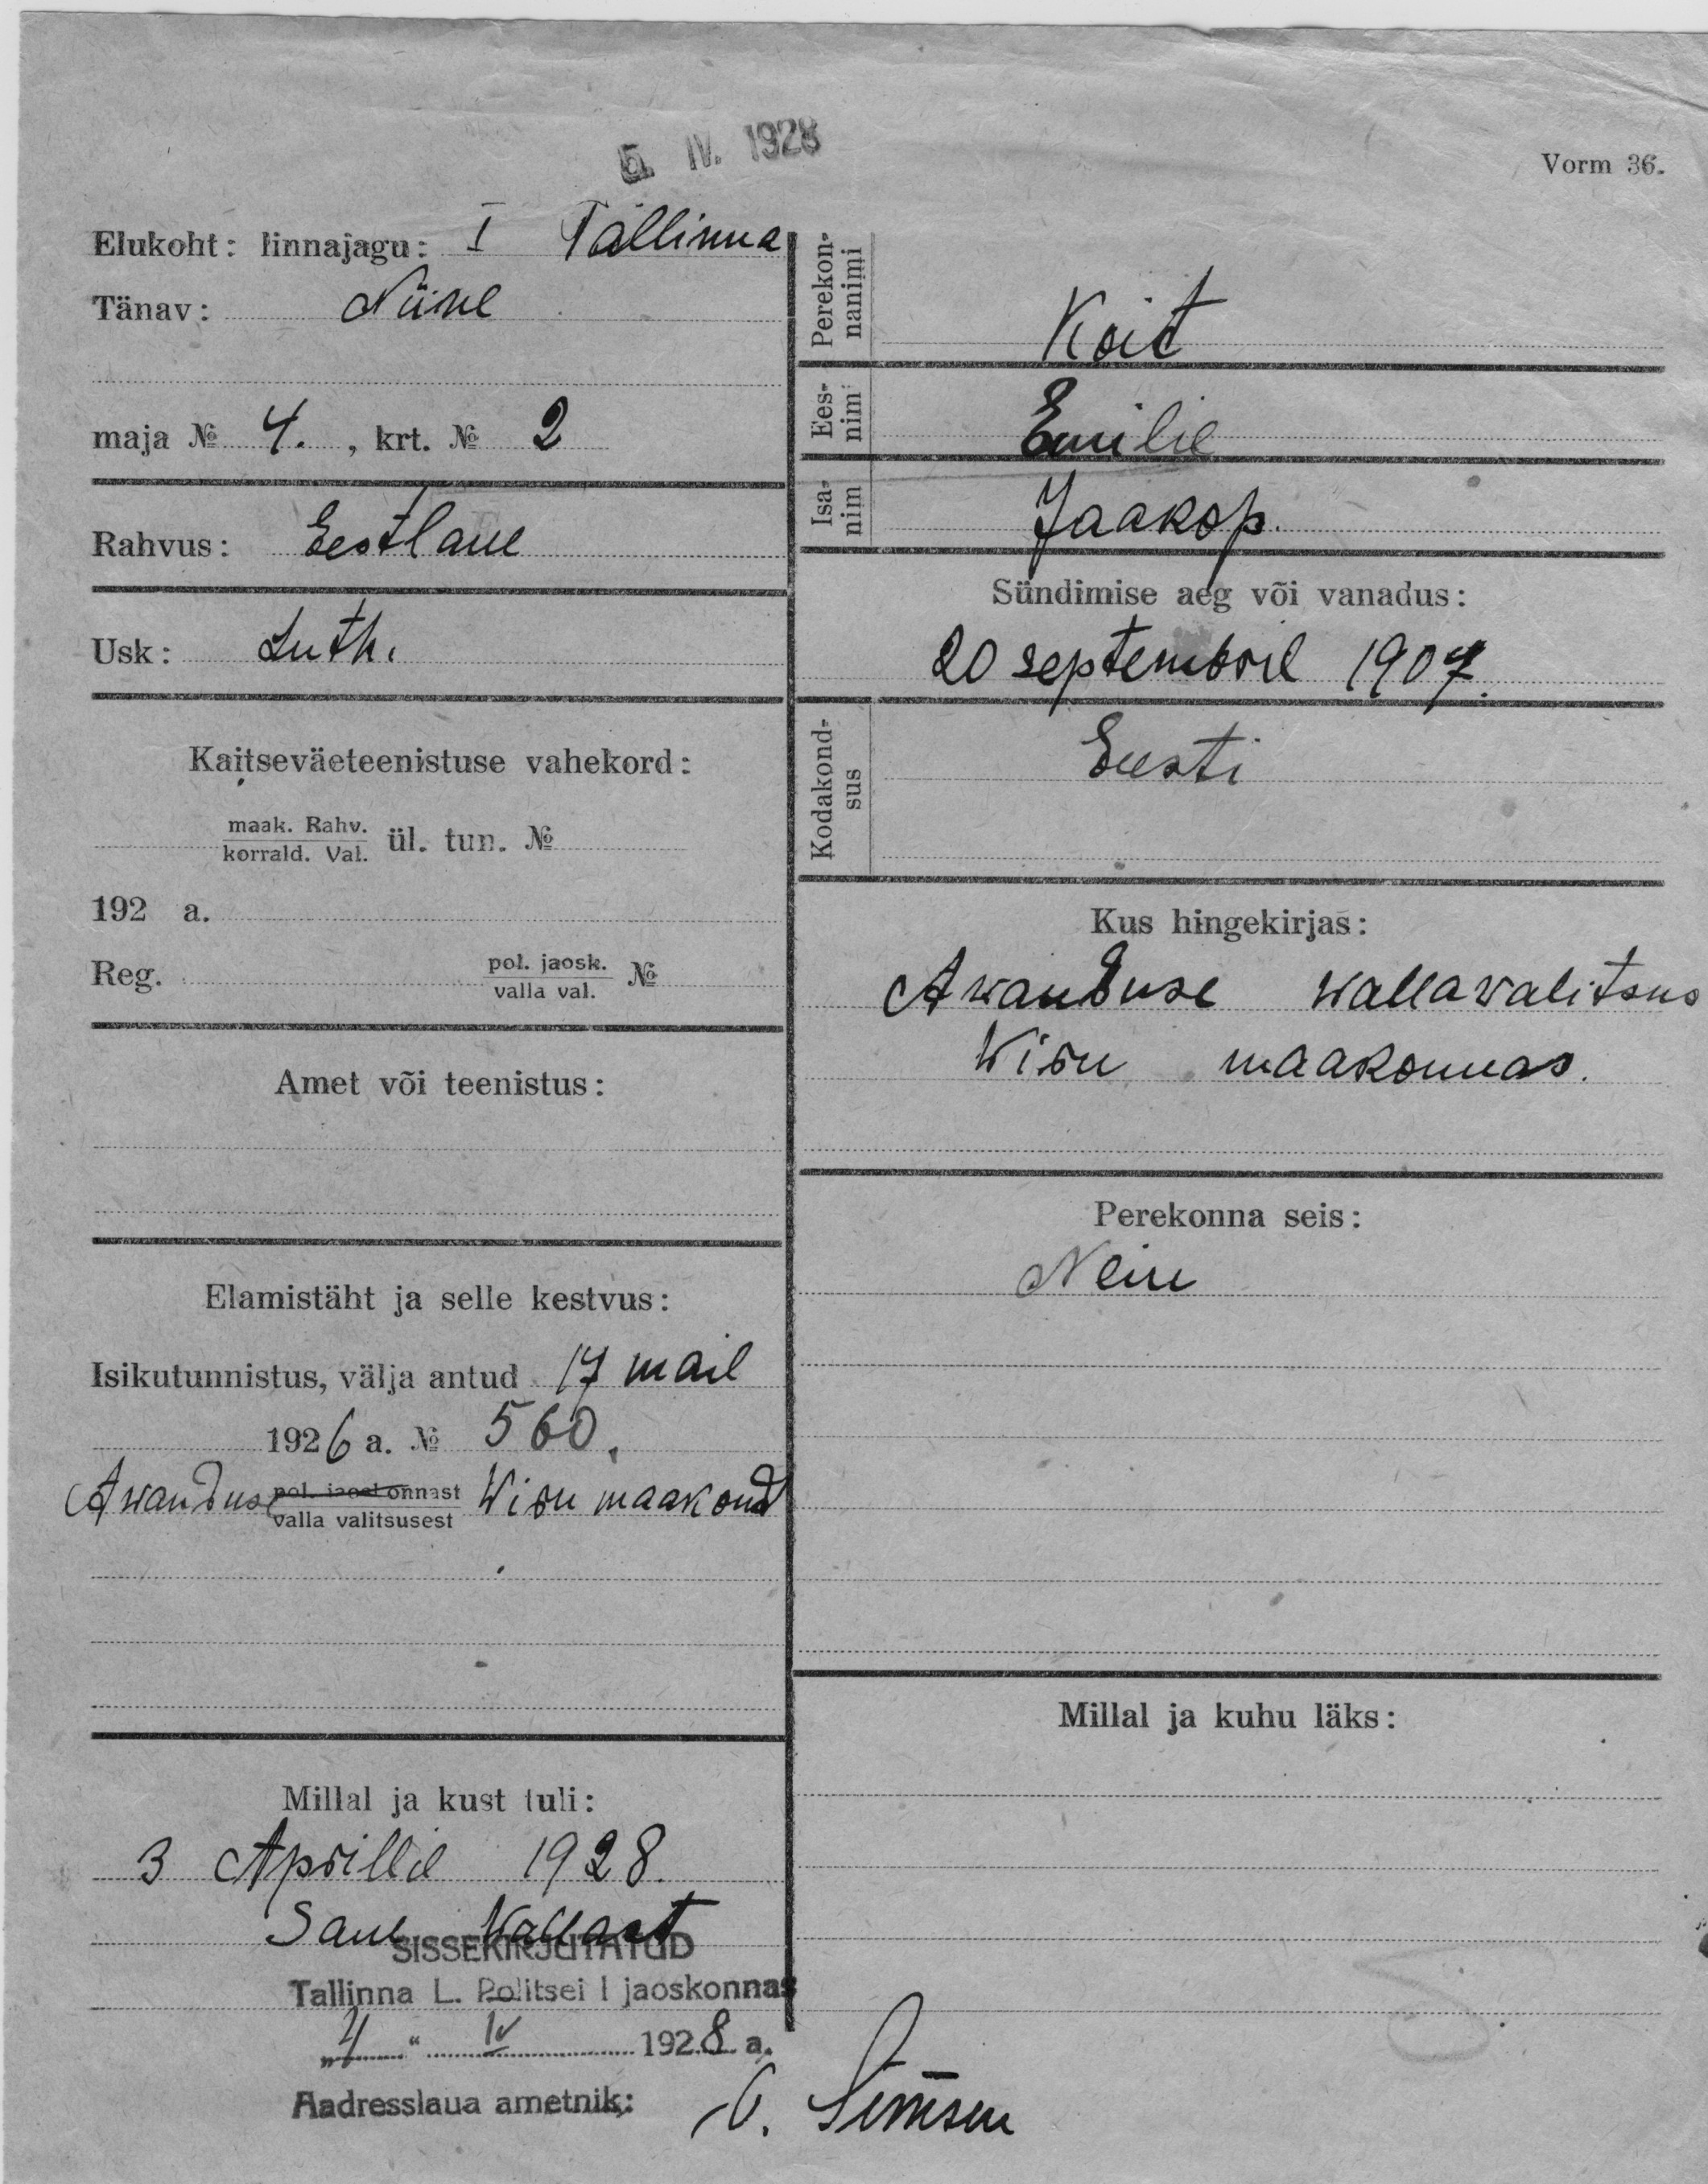 5. IV. 1928
Vorm 36.
Elukoht: linnajagu: I Tallinna
Tänav: Niine
maja № 4. , krt. № 2
Rahvus: Eestlane
Usk: Luth.
Kaitseväeteenistuse vahekord:
maak. Rahv.
korrald. Val. ül. tun. №
192 a.
Reg. pol. jaosk.
valla val. №
Amet või teenistus:
Elamistäht ja selle kestvus:
Isikutunnistus, välja antud 17 mail
1926 a. № 560.
Awanduse pol. jaoskonnast
valla valitsusest Wiru maakond
Millal ja kust tuli:
3 Aprillil 1928.
Saue Wallast
SISSEKIRJUTATUD
Tallinna L. Politsei I jaoskonnas
„4" IV 1928 a.
Aadresslaua ametnik:
Perekon-
nanimi Koit
Ees-
nim: Emilie
Isa-
nim Jaakop.
Sündimise aeg või vanadus:
20 septembril 1907.
Kodakond-
sus Eesti
Kus hingekirjas:
Awanduse wallawalitsus
Wiru maakonnas.
Perekonna seis:
Neiu
Millal ja kuhu läks: